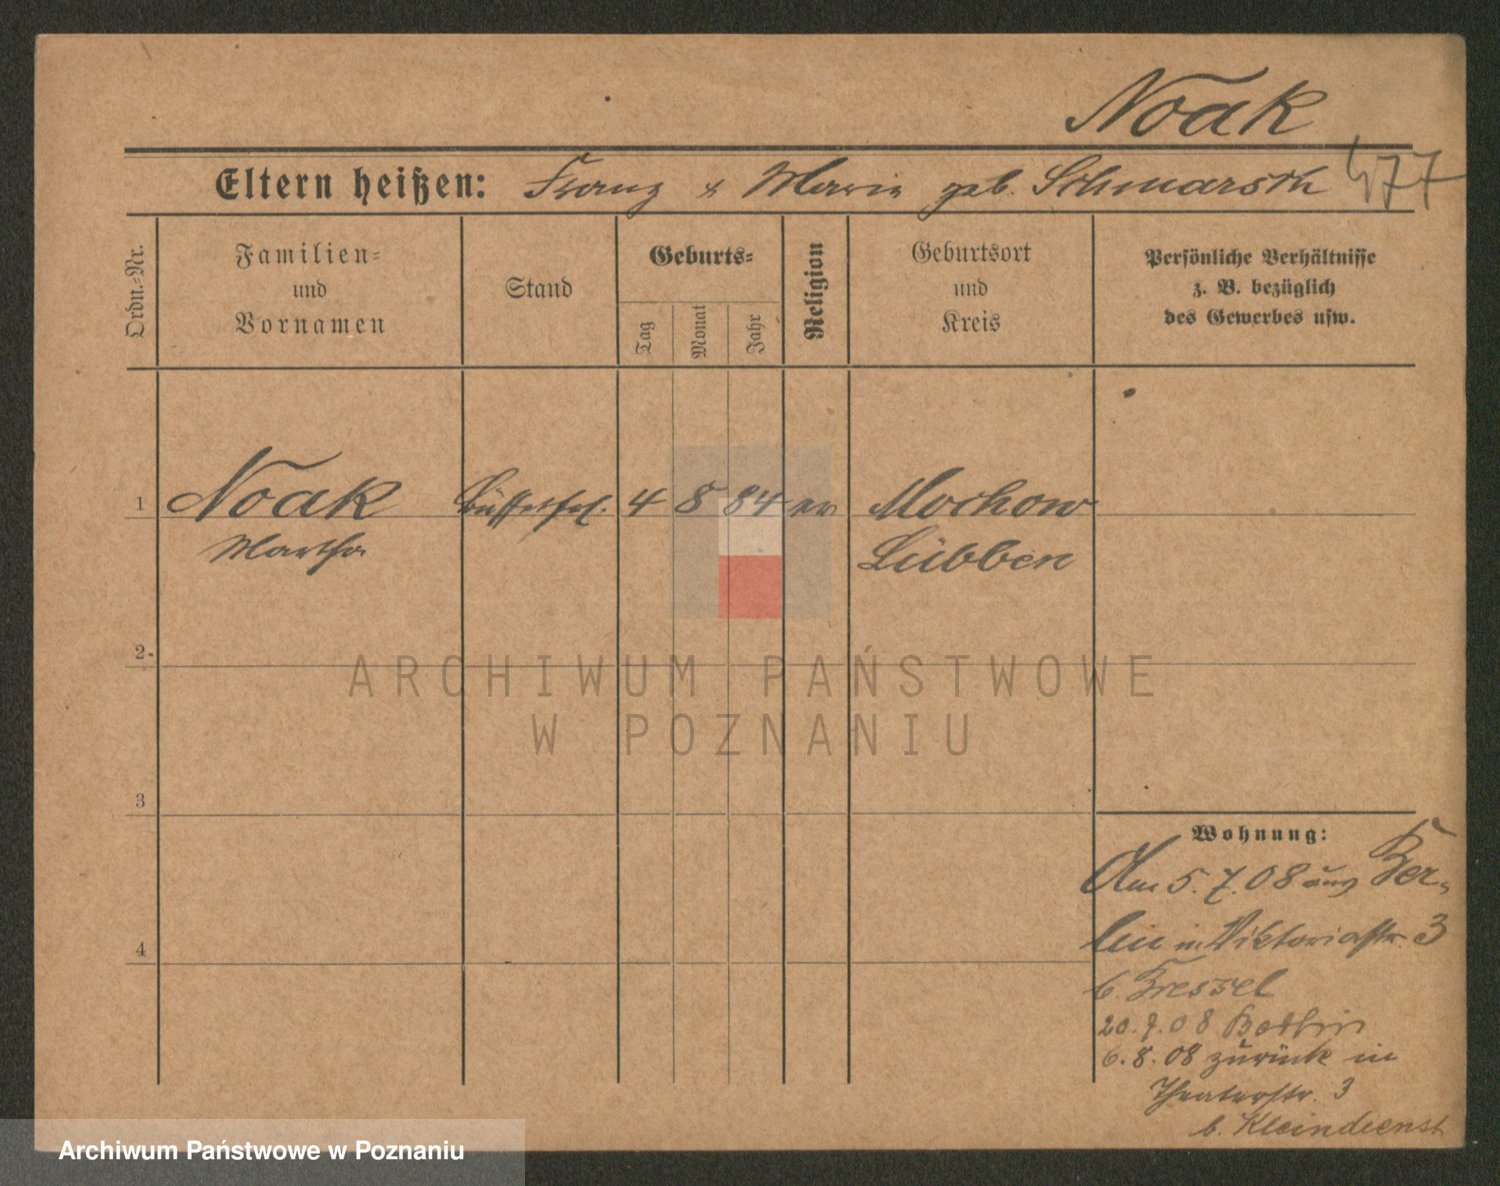 Noak
Eltern heißen: Franz & Marie geb. Schmarsch 477
Ordn.-Nr.
Familien=
und
Vornamen
Stand
Geburts=
Tag
Monat
Jahr
Religion
Geburtsort
und
Kreis
Persönliche Verhältnisse
z. B. bezüglich
des Gewerbes usw.
1 Noak Büffetfrl. 4 8 84 ev Mochow
Martha Lübben
2
3
4
Wohnung:
Am 5.7.08 aus Ber-
lin n. Viktoriastr. 3
b. Kressel
20.7.08 Berlin
6.8.08 zurück in
Theaterstr. 3
b. Kleindienst
ARCHIWUM PAŃSTWOWE
W POZNANIU
Archiwum Państwowe w Poznaniu